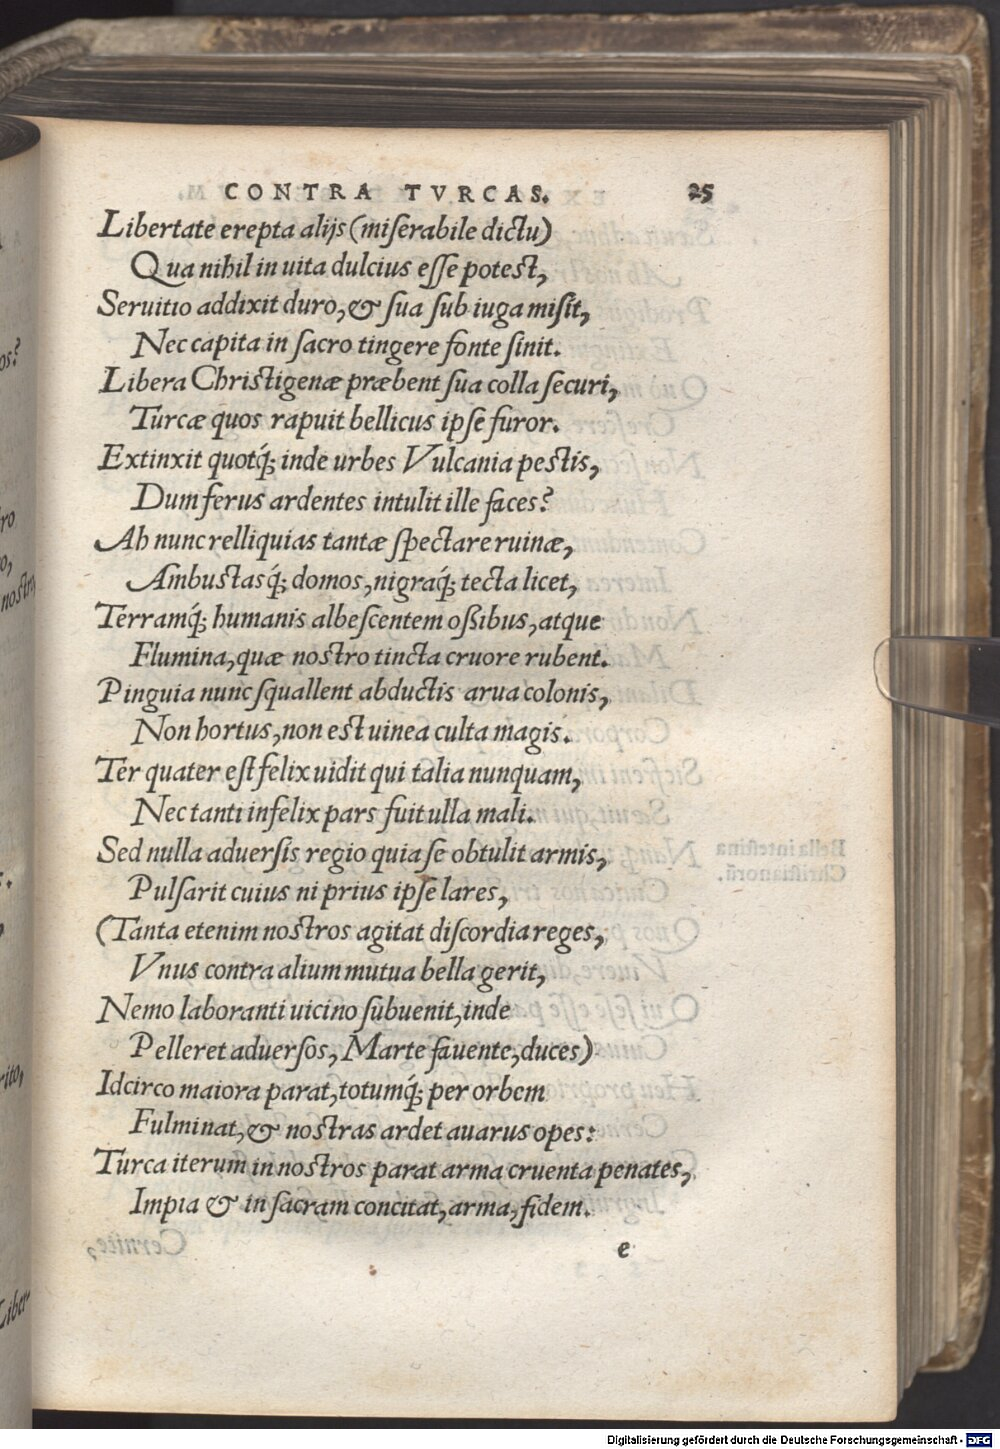 CONTRA TVRCAS. 25
Libertate erepta alijs (miserabile dictu)
Qua nihil in uita dulcius esse potest,
Seruitio addixit duro, & sua sub iuga misit,
Nec capita in sacro tingere fonte sinit.
Libera Christigenæ præbent sua colla securi,
Turcæ quos rapuit bellicus ipse furor.
Extinxit quotq́; inde urbes Vulcania pestis,
Dum ferus ardentes intulit ille faces?
Ah nunc relliquias tantæ spectare ruinæ,
Ambustasq́; domos, nigraq́; tecta licet,
Terramq́; humanis albescentem ossibus, atque
Flumina, quæ nostro tincta cruore rubent.
Pinguia nunc squallent abductis arua colonis,
Non hortus, non est uinea culta magis.
Ter quater est felix uidit qui talia nunquam,
Nec tanti infelix pars fuit ulla mali.
Sed nulla aduersis regio quia se obtulit armis,
Pulsarit cuius ni prius ipse lares,
(Tanta etenim nostros agitat discordia reges,
Vnus contra alium mutua bella gerit,
Nemo laboranti uicino subuenit, inde
Pelleret aduersos, Marte fauente, duces)
Idcirco maiora parat, totumq́; per orbem
Fulminat, & nostras ardet auarus opes:
Turca iterum in nostros parat arma cruenta penates,
Impia & in sacram concitat, arma, fidem.
e
Digitalisierung gefördert durch die Deutsche Forschungsgemeinschaft - DFG